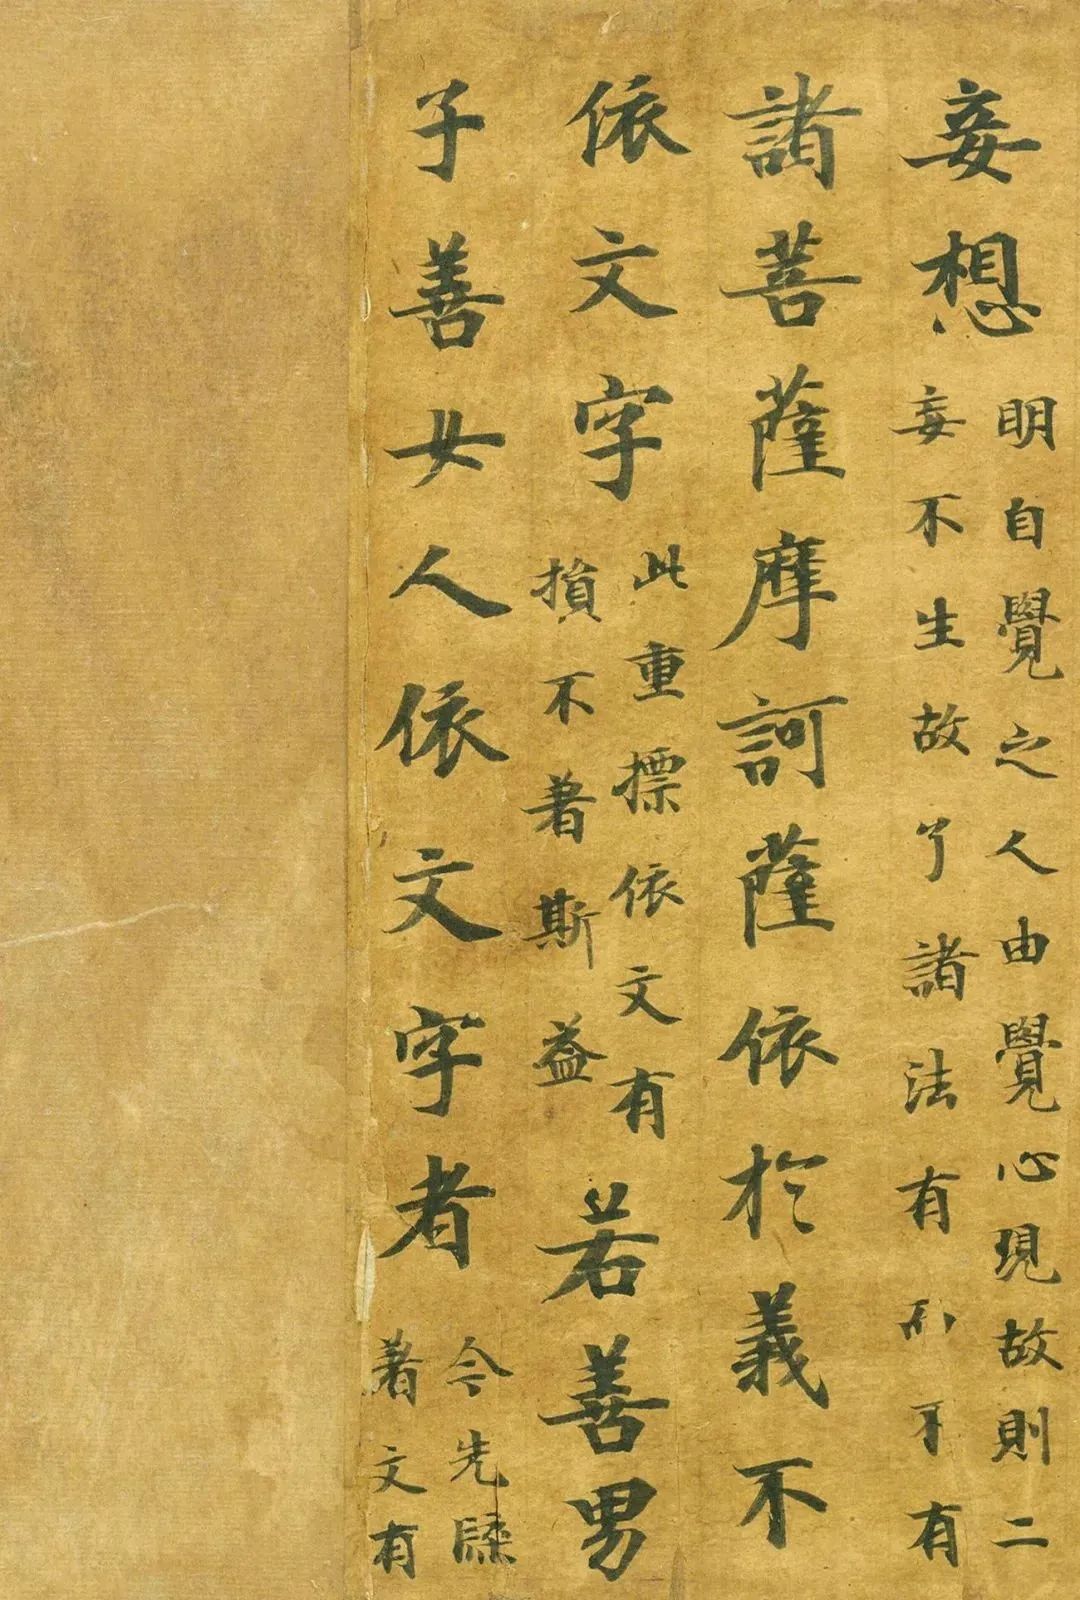 妄想
明自覺之人由覺心現故則二
妄不生故了諸法有不有
諸菩薩摩訶薩依於義不
依文字
此重摽依文有
損不著斯益
若善男
子善女人依文字者
令先
著文有